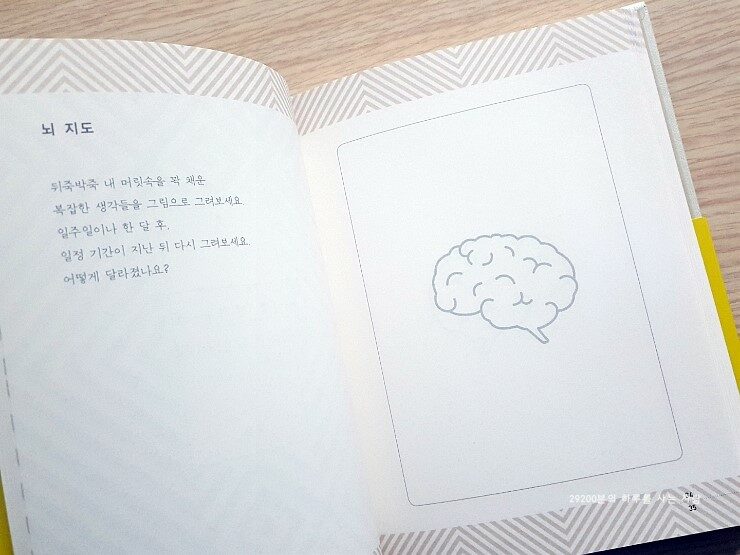 뇌 지도
뒤죽박죽 내 머릿속을 꽉 채운
복잡한 생각들을 그림으로 그려보세요.
일주일이나 한 달 후,
일정 기간이 지난 뒤 다시 그려보세요.
어떻게 달라졌나요?
29200분의 하루를 사는
34
35